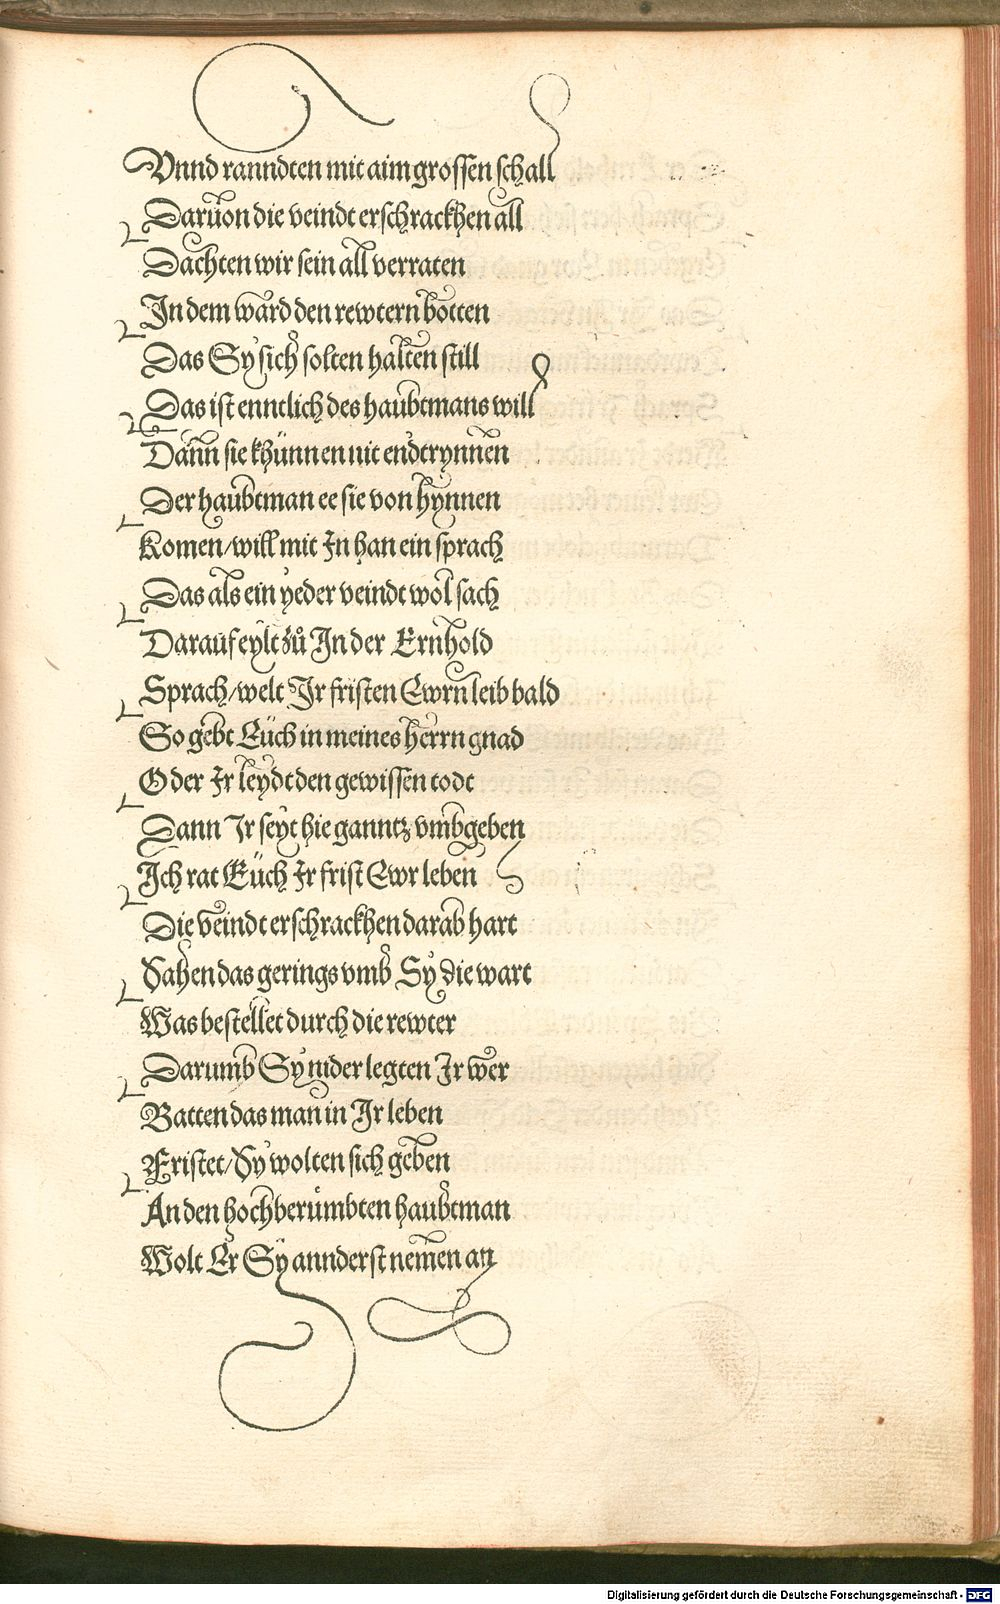 Vnnd ranndten mit aim grossen schall
Daruon die veindt erschrackhen all
Dachten wir sein all verraten
In dem ward den rewtern botten
Das Sy sich solten halten still
Das ist enntlich des haubtmans will
Dann sie khünnen nit endtrynnen
Der haubtman ee sie von hynnen
Komen/will mit In han ein sprach
Das als ein yeder veindt wol sach
Darauf eylt zů In der Ernhold
Sprach/welt Ir fristen Ewrn leib bald
So gebt Eüch in meines herrn gnad
Oder Ir leydt den gewissen todt
Dann Ir seyt hie ganntz vmbgeben
Ich rat Eüch Ir frist Ewr leben
Die veindt erschrackhen darab hart
Sahen das gerings vmb Sy die wart
Was bestellet durch die rewter
Darumb Sy nider legten Ir wer
Batten das man in Ir leben
Fristet/Sy wolten sich geben
An den hochberümbten haubtman
Wolt Er Sy annderst nemen an
Digitalisierung gefördert durch die Deutsche Forschungsgemeinschaft - DFG